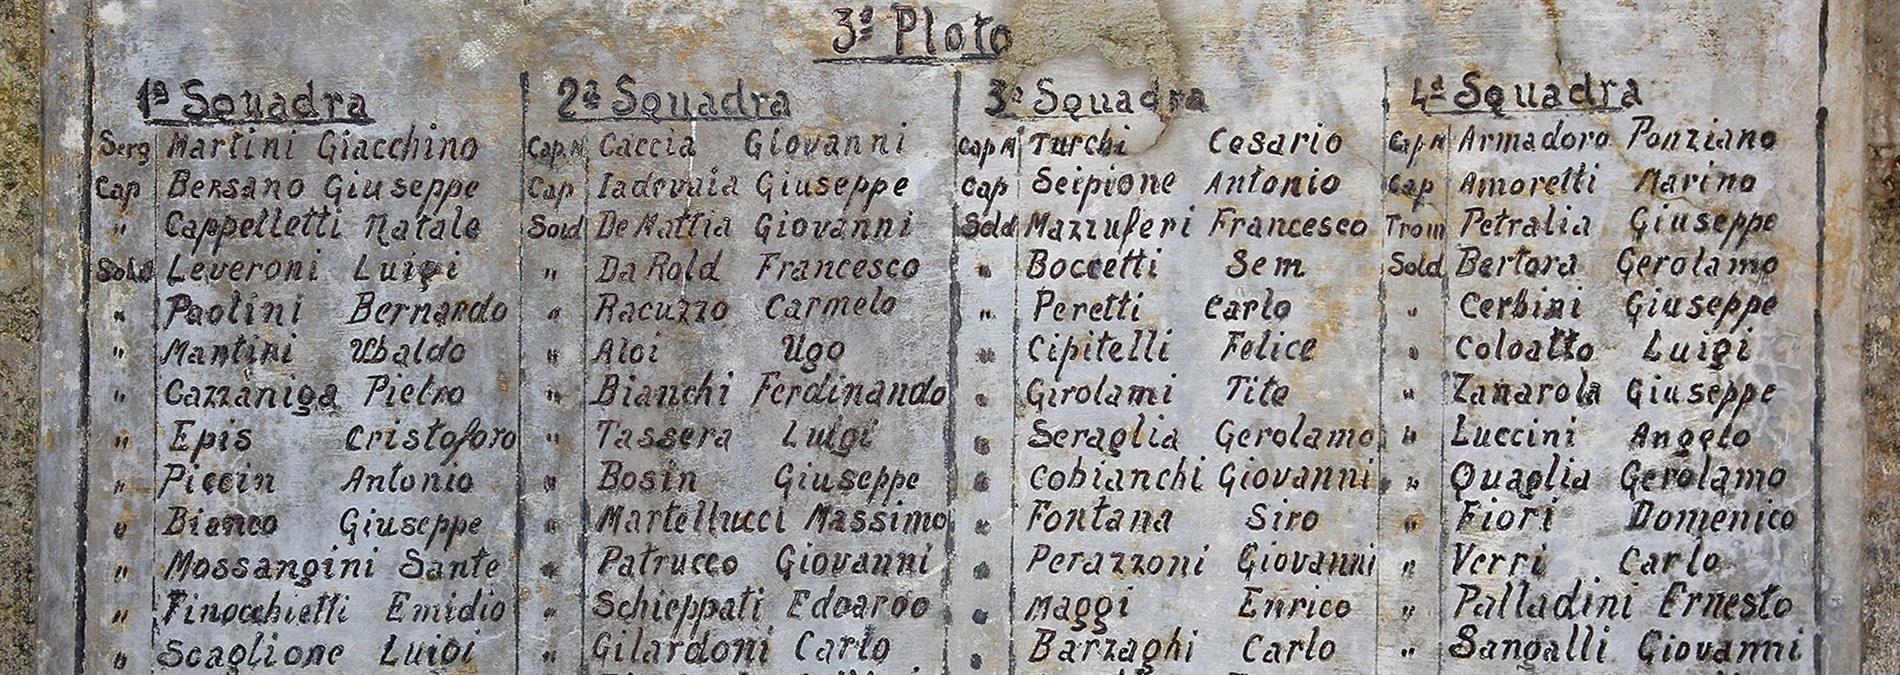 3º Ploto
1ª Squadra 2ª Squadra 3ª Squadra 4ª Squadra
Serg Martini Giacchino Cap.M Caccia Giovanni Cap M Turchi Cesario Cap M Armadoro Ponziano
Cap Bersano Giuseppe Cap Iadevaia Giuseppe Cap Scipione Antonio Cap Amoretti Marino
" Cappelletti Natale Sold De Mattia Giovanni Sold Mazzuferi Francesco Trom Petralia Giuseppe
Sold Leveroni Luigi " Da Rold Francesco " Boccetti Sem Sold Bertora Gerolamo
" Paolini Bernardo " Racuzzo Carmelo " Peretti Carlo " Cerbini Giuseppe
" Mantini Ubaldo " Aloi Ugo " Cipitelli Felice " Coloatto Luigi
" Cazzaniga Pietro " Bianchi Ferdinando " Girolami Tito " Zanarola Giuseppe
" Epis Cristoforo " Tassera Luigi " Seraglia Gerolamo " Luccini Angelo
" Piccin Antonio " Bosin Giuseppe " Cobianchi Giovanni " Quaglia Gerolamo
" Bianco Giuseppe " Martellucci Massimo " Fontana Siro " Fiori Domenico
" Mossangini Sante " Patrucco Giovanni " Perazzoni Giovanni " Verri Carlo
" Finocchietti Emidio " Schieppati Edoardo " Maggi Enrico " Palladini Ernesto
" Scaglione Luigi " Gilardoni Carlo " Barzaghi Carlo " Sangalli Giovanni